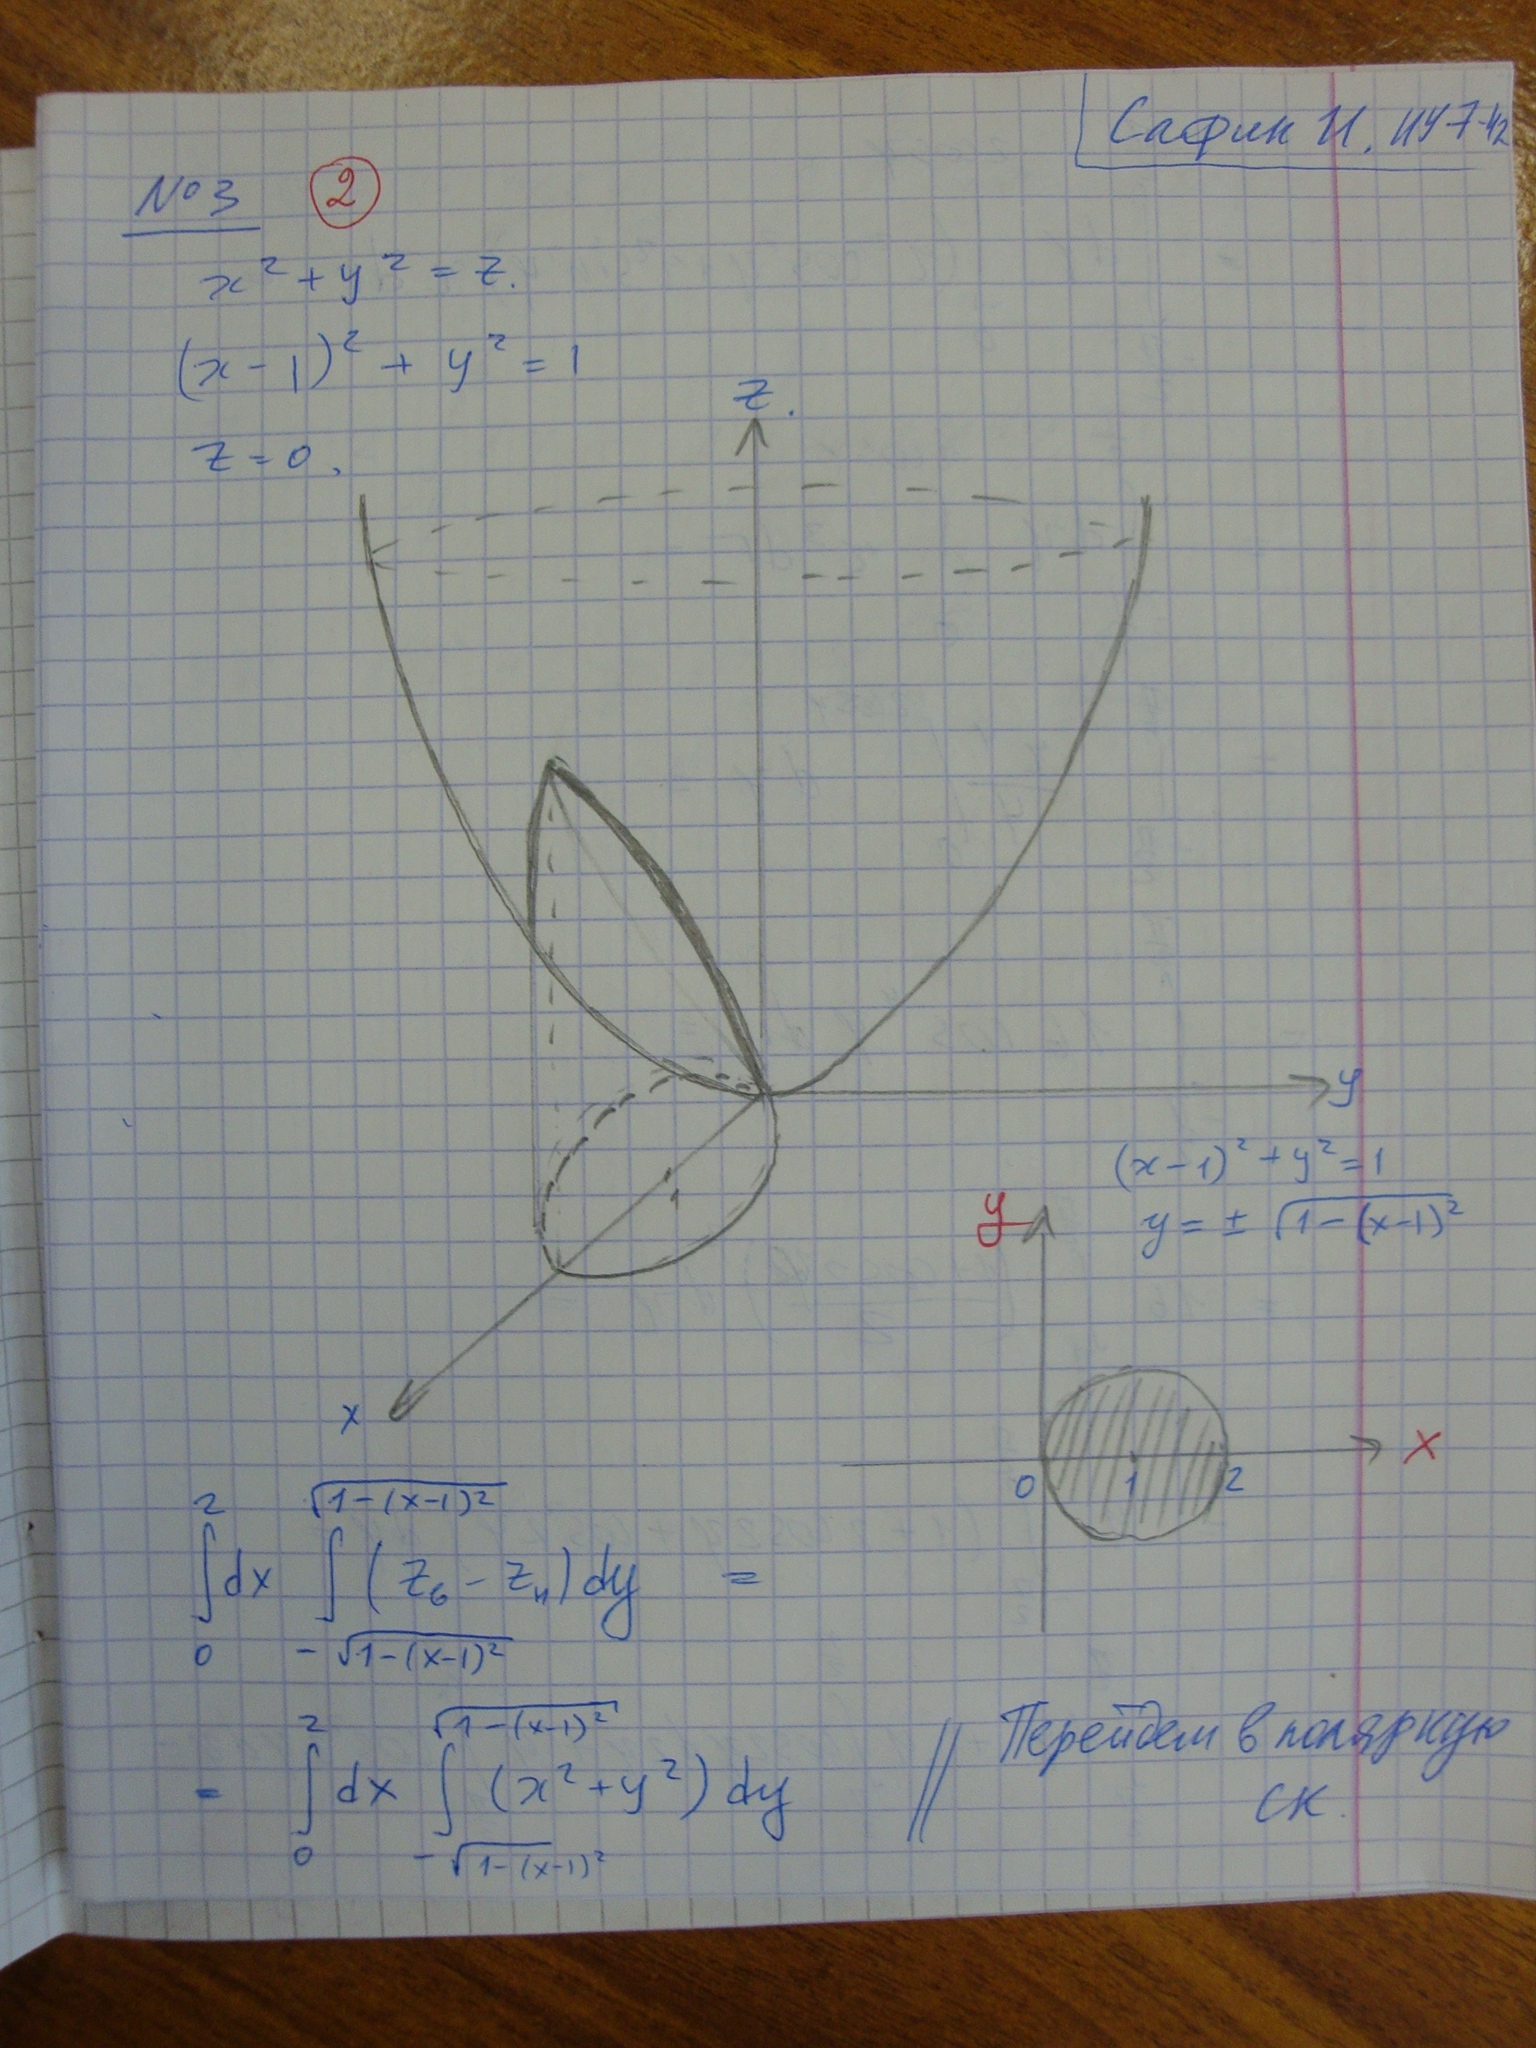 Сафин И. ИУ7-42
№3 2
x² + y² = z.
(x-1)² + y² = 1
z = 0.
z.
y
1
x
(x-1)² + y² = 1
y = ± √1-(x-1)²
y
x
0 1 2
2 √1-(x-1)²
∫dx ∫(zв - zн)dy =
0 -√1-(x-1)²
2 √1-(x-1)²
= ∫dx ∫(x² + y²)dy // Перейдем в полярную
СК.
0 -√1-(x-1)²